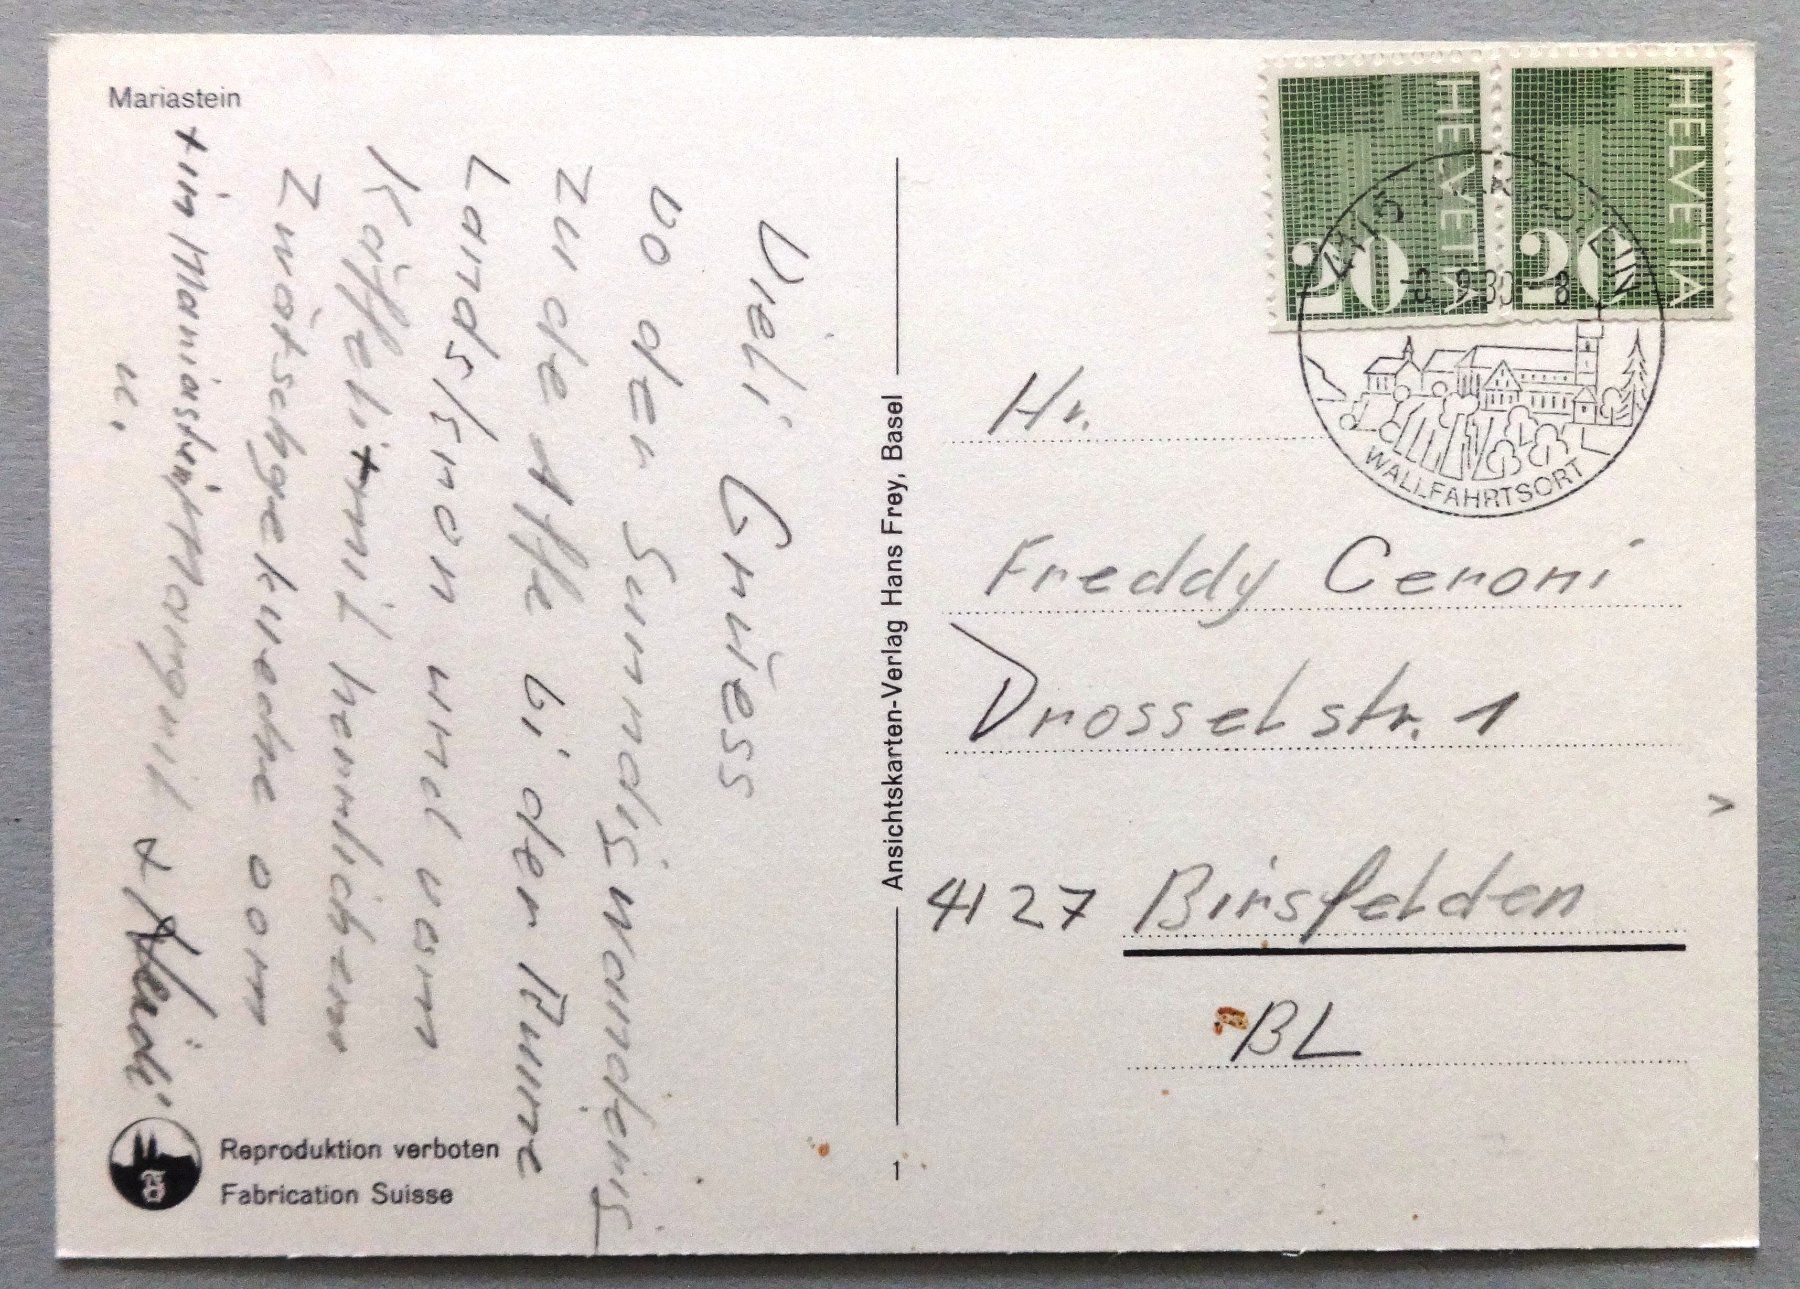 Mariastein
Vieli Grüess
vo der Sunndigswanderig
zu de Affe bi der Ruine
Landskron und vom
Käffeli + mit herrlichem
Zwätschgekueche vom
+ in Mariastein
u. Margrit + Heidi
Reproduktion verboten
Fabrication Suisse
Ansichtskarten-Verlag Hans Frey, Basel
1
HELVETIA
20
HELVETIA
20
4115 MARIASTEIN
9.80 - 8
WALLFAHRTSORT
Hr.
Freddy Ceroni
Drosselstr. 1
4127 Birsfelden
BL